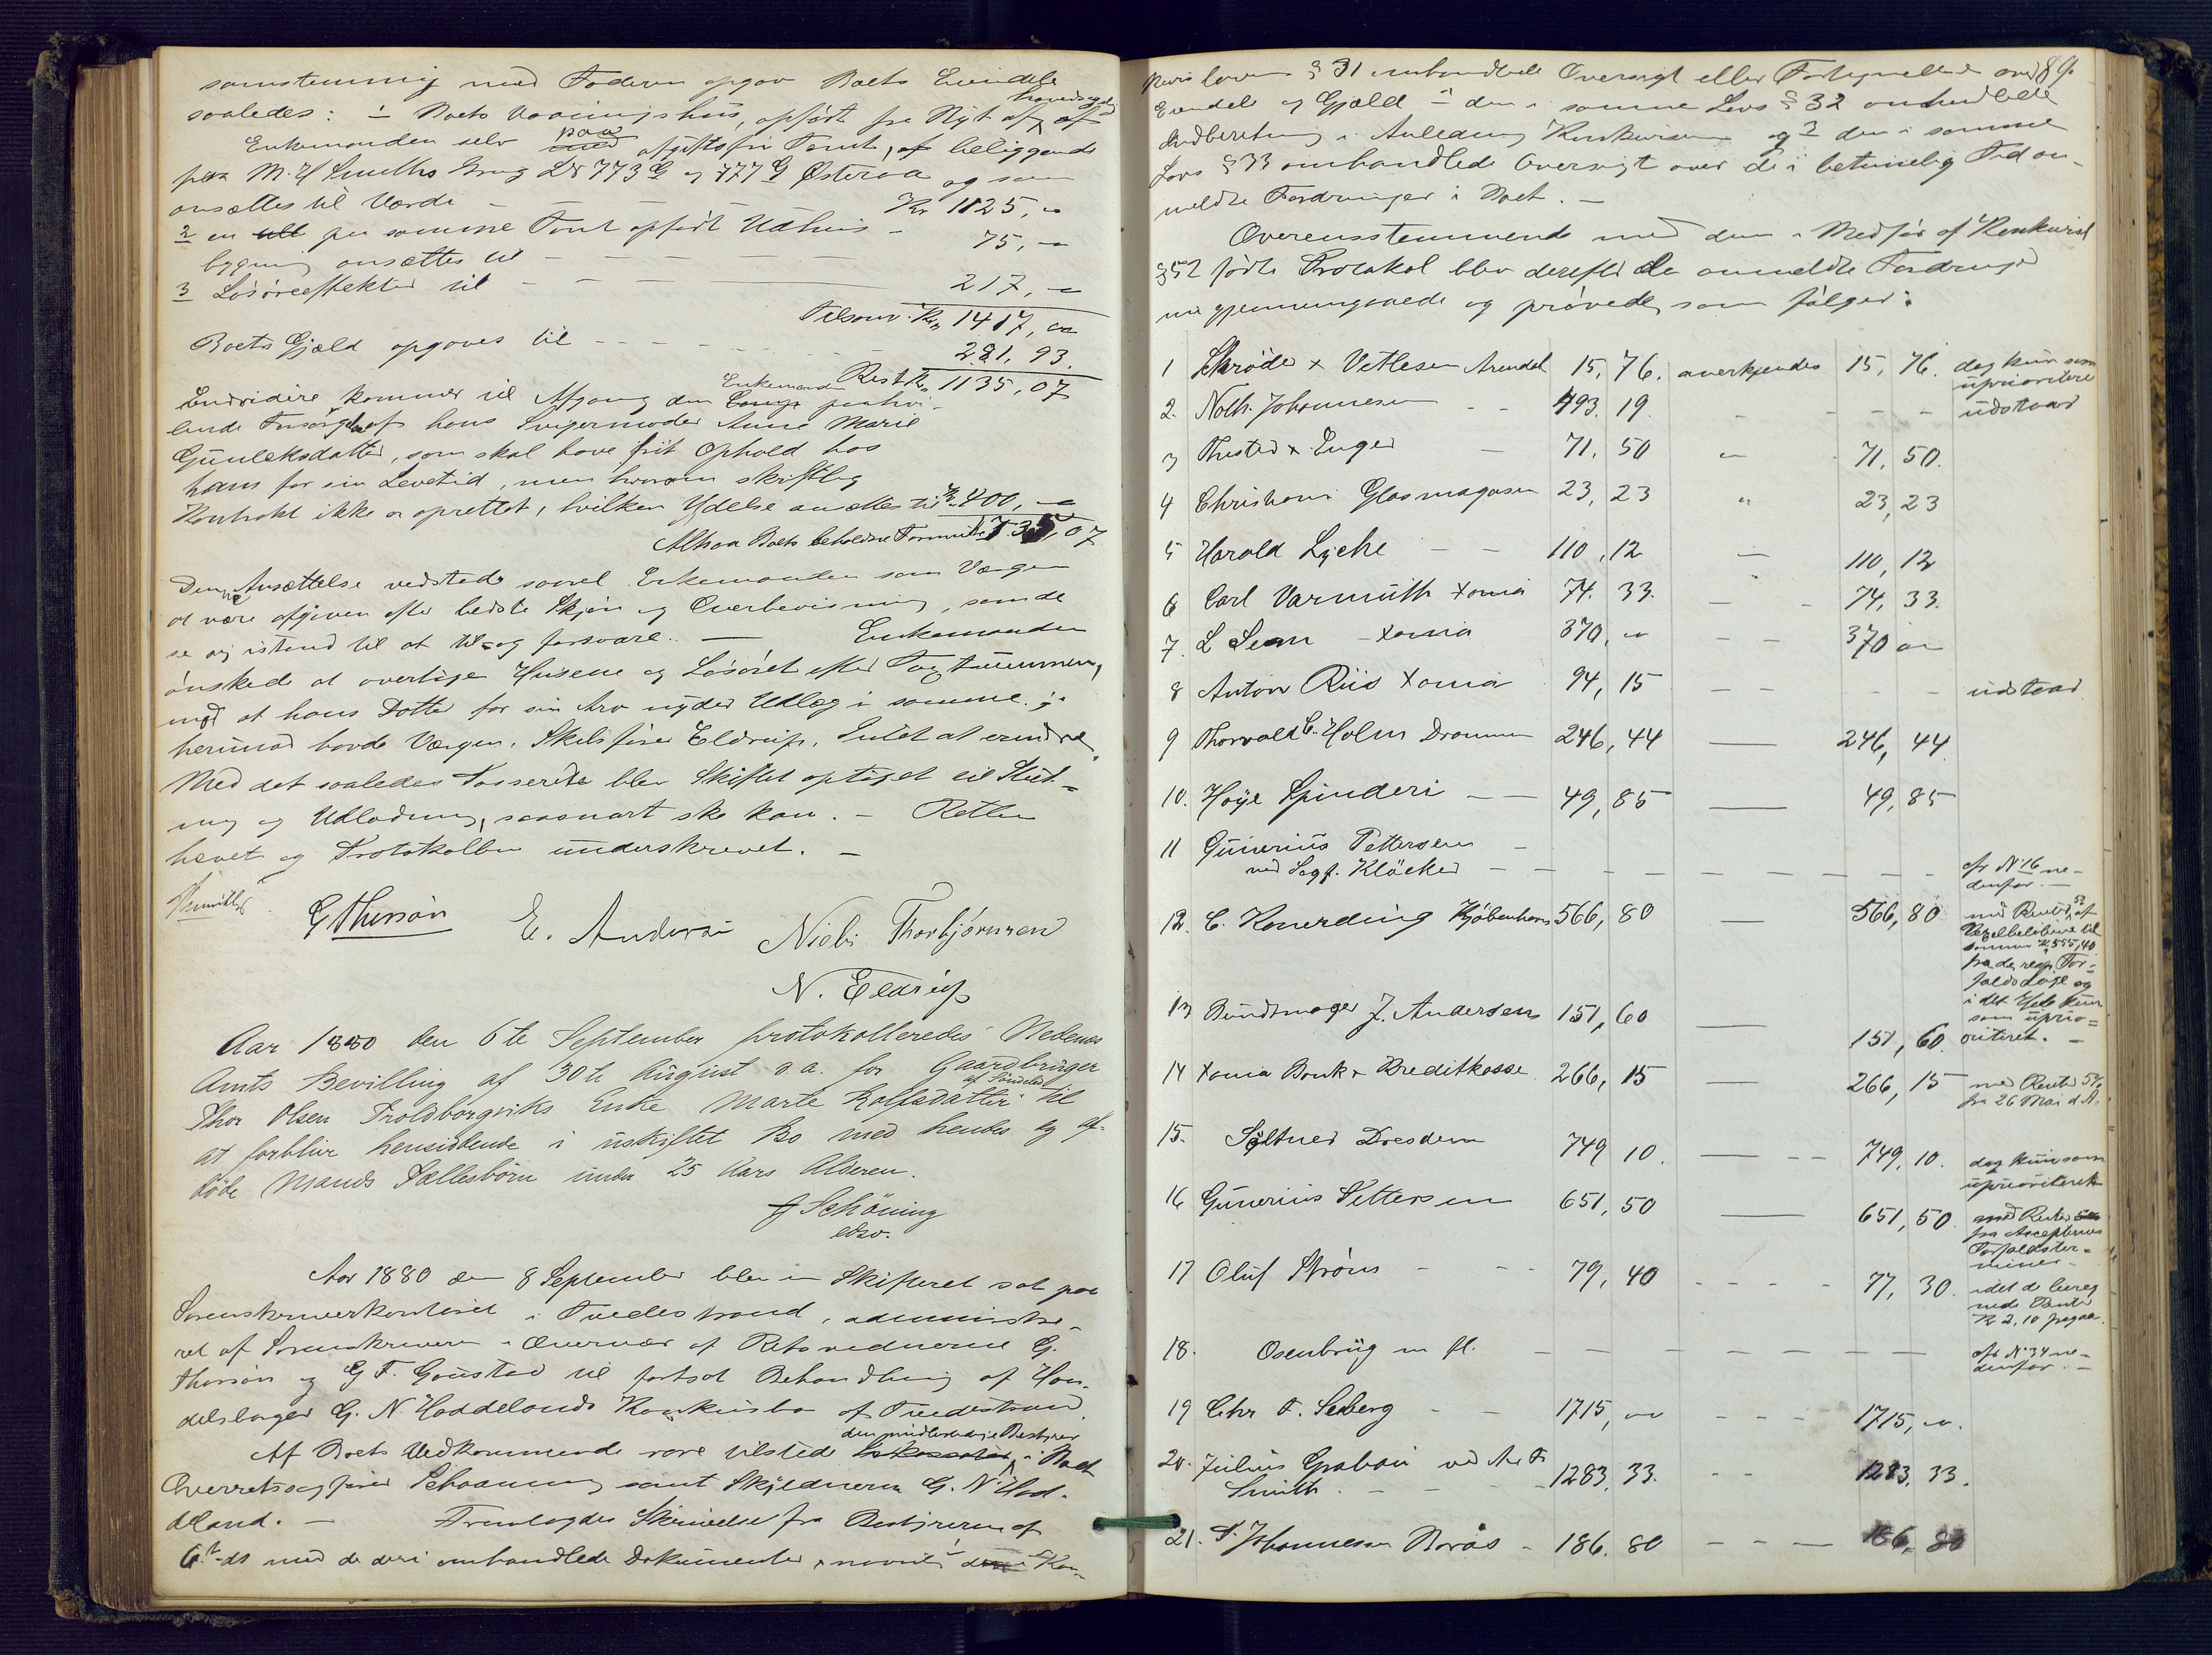 samstemmig med Faderen opgav Boets Eiendele
saaledes: 1 Boets Vaaningshus, opført fra Nyt af
Enkemanden selv paa afgiftsfri Tomt, beliggende
paa M. H Smiths Grug LN 773 G og 777 G Østeraa og som
ansættes til Værdi Kr 1125, "
2 en paa samme Tomt opført Udhus-
bygning ansættes til 75, "
3 Løsøreeffekter til 217, "
Tilsam. Kr 1417, "
Boets Gjæld opgaves til 281, 93.
Rest Kr 1135, 07
Endvidere kommer til Afgang den Enkemanden paahvi-
lende Forsørgelse af hans Svigermoder Anne Marie
Gunleksdatter, som skal have frit Ophold hos
ham for sin Levetid, men hvorom skriftlig
Kontrakt ikke er oprettet, hvilken Ydelse ansættes til Kr 400, "
Altsaa Boets beholdne Formue Kr 735, 07
Denne Ansættelse vedstode saavel Enkemanden som Værgen
at være afgiven efter bedste Skjøn og Overbevisning, som de
se sig istand til at til- og forsvare. — Enkemanden
ønskede at overtage Husene og Løsøret efter Taxtsummen,
mod at hans Datter for sin Arv nyder Udlæg i samme;
herimod havde Værgen, Skibsfører Eldrup, Intet at erindre.
Med det saaledes Passerede blev Skiftet optaget til Slut-
ning og Udlodning, saasnart ske kan. — Retten
hævet og Protokollen underskrevet. —
G Thorsøn E. Andersen Niels Thorbjørnsen
N. Eldrup
Aar 1880 den 6te September protokolleredes Nedenes
Amts Bevilling af 30te August d.a. for Gaardbruger
Thor Olsen Troldborgviks Enke Marte Rolfsdatter af Søndeled til
at forblive hensiddende i uskiftet Bo med hendes og af-
døde Mands Fællesbørn under 25 Aars Alderen.
Schöning
edsv.
Aar 1880 den 8 September blev en Skifteret sat paa
Sorenskriverkontoret i Tvedestrand, administre-
ret af Sorenskriveren i Overvær af Retsvidnerne G.
Thorsøn og G F. Goustad til fortsat Behandling af Han-
delsborger G. N. Haddelands Konkursbo af Tvedestrand.
Af Boets Vedkommende vare tilstede den midlertidige Bestyrer i Boet
Overretssagfører Schaanning samt Skyldneren G. N. Had-
deland. — Fremlagdes Skrivelse fra Bestyreren af
6te ds med de deri omhandlede Dokumenter, navnlig 1 den i Kon-
kurslovens § 31 omhandlede Oversigt eller Fortegnelse over 89.
Eiendele og Gjæld 2 den i samme Lovs § 32 omhandlede
Indberetning i Anledning Konkursen og 3 den i samme
Lovs § 33 omhandlede Oversigt over de i betimelig Tid an-
meldte Fordringer i Boet. —
Overensstemmende med den i Medfør af Konkursl
§ 52 førte Protokol blev derefter de anmeldte Fordringer
nu gjennemgaaede og prøvede, som følger:
1 Skrøder & Vetlesen Arendal 15, 76. anerkjendes 15, 76. dog kun som uprioritere
2. Nath. Johannesen 493. 19. udstaar
3 Thusted & Enger 71, 50 " 71, 50.
4 Christiania Glasmagasin 23, 23 " 23, 23
5 Harald Lyche 110, 12 — 110, 12
6 Carl Varmuth Xania 74. 33. — 74, 33.
7. L Sem Xania 370, " — 370 "
8 Anton Riis Xania 94, 15 — udstaar
9 Thorvald C. Holm Drammen 246, 44 — 246, 44
10. Høye Spinderi 49, 85 — 49, 85
11 Gunerius Pettersen
ved Sagf. Kløcker — cfr No 16 ne-
denfor. —
12. C. Konerding Kjøbenhavn 566, 80 — 566, 80 med Renter 5% af
Vexelbeløbene til
sammen Kr 555,40
fra de resp. For-
faldsdage og
i det Hele kun
som uprio-
riteret. —
13 Bundtmager J. Andersen 151, 60 — 151, 60.
14 Xania Bank & Kreditkasse 266, 15 — 266, 15 med Renter 5%
fra 26 Mai d. A.
15. Søltner Dresden 749 10. — 749, 10. dog kun som
uprioriteret
16 Gunerius Pettersen 651, 50 — 651, 50. med Renter
fra Accepternes
Forfaldster-
miner —
17 Oluf Strøm 79, 40 — 77, 30. idet de bereg
nede Renter
Kr 2,10 fragaa.
18. Osenbrüg m fl. — cfr No 34 ne-
denfor. —
19 Chr F. Seberg 1715, " — 1715, ".
20. Julius Grabau ved A. F.
Smith 1283, 33. — 1283, 33.
21. F. Johannesen Borås 186. 80 — 186, 80